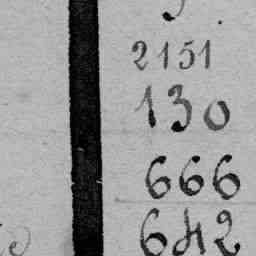 2151
130
666
642